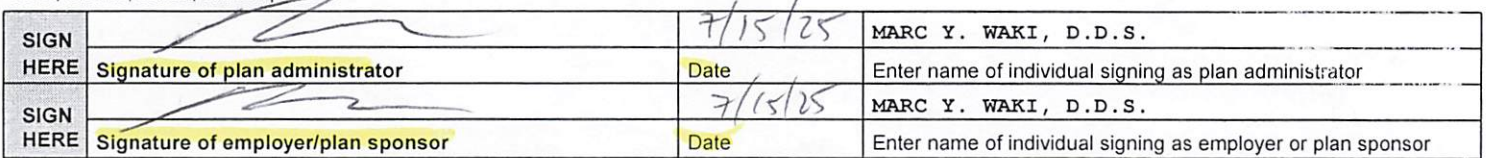 SIGN HERE
7/15/25 MARC Y. WAKI, D.D.S.
Signature of plan administrator Date Enter name of individual signing as plan administrator
SIGN HERE
7/15/25 MARC Y. WAKI, D.D.S.
Signature of employer/plan sponsor Date Enter name of individual signing as employer or plan sponsor